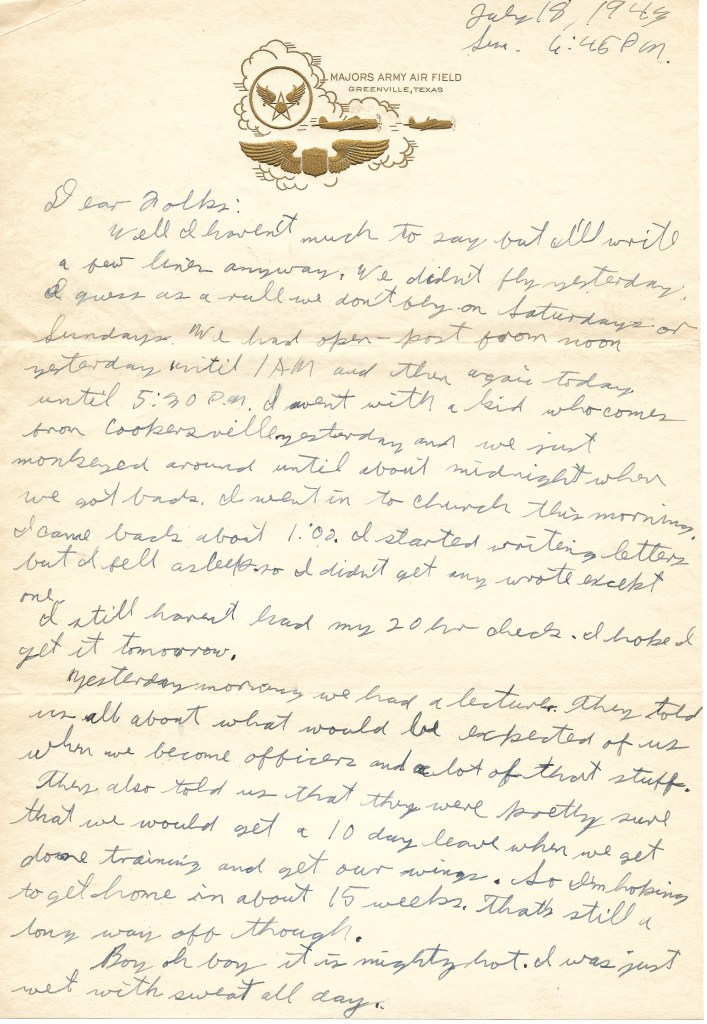 July 18, 1943
Sun. 6:45 P.M.
MAJORS ARMY AIR FIELD
GREENVILLE, TEXAS
Dear Folks:
Well I haven't much to say but I'll write
a few lines anyway. We didn't fly yesterday.
I guess as a rull we don't fly on Saturdays or
Sundays. We had open-post from noon
yesterday until 1 AM and then again today
until 5:30 P.M. I went with a kid who comes
from Cookersville yesterday and we just
monkeyed around until about midnight when
we got back. I went in to church this morning.
I came back about 1:00. I started writing letters
but I fell asleep so I didn't get any wrote except
one.
I still haven't had my 20 hr check. I hope I
get it tomorrow.
Yesterday morning we had a lecture. They told
us all about what would be expected of us
when we become officers and a lot of that stuff.
They also told us that they were pretty sure
that we would get a 10 day leave when we get
done training and get our wings. So I'm hoping
to get home in about 15 weeks. That's still a
long way off though.
Boy oh boy it is mighty hot. I was just
wet with sweat all day.